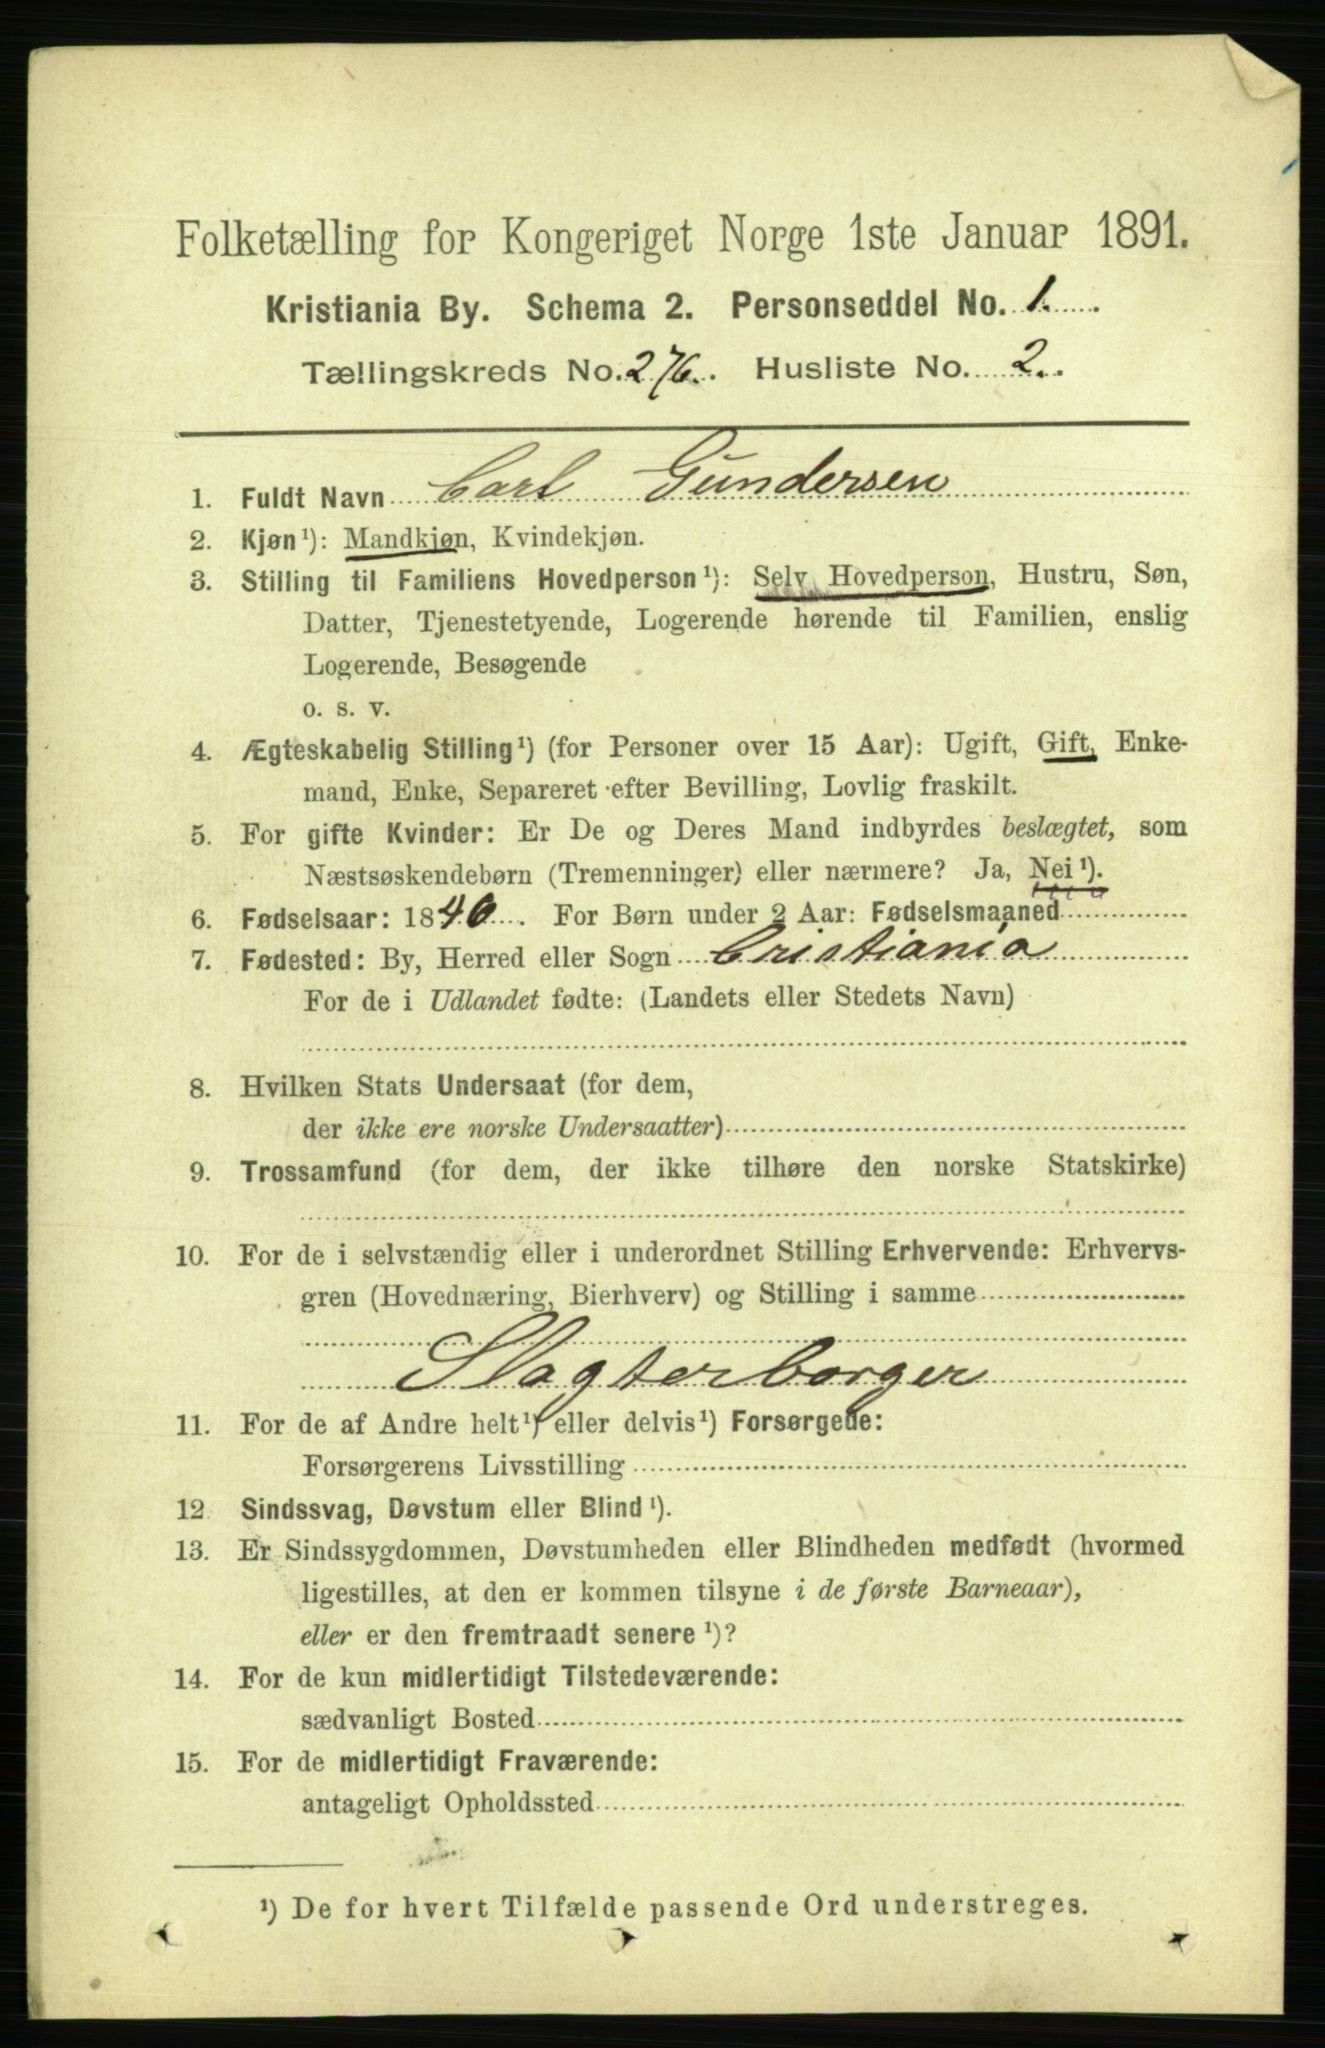 Folketælling for Kongeriget Norge 1ste Januar 1891.
Kristiania By. Schema 2. Personseddel No. 1.
Tællingskreds No. 276. Husliste No. 2.
1. Fuldt Navn Carl Gundersen
2. Kjøn¹): Mandkjøn, Kvindekjøn.
3. Stilling til Familiens Hovedperson¹): Selv Hovedperson, Hustru, Søn,
Datter, Tjenestetyende, Logerende hørende til Familien, enslig
Logerende, Besøgende
o. s. v.
4. Ægteskabelig Stilling¹) (for Personer over 15 Aar): Ugift, Gift, Enke-
mand, Enke, Separeret efter Bevilling, Lovlig fraskilt.
5. For gifte Kvinder: Er De og Deres Mand indbyrdes beslægtet, som
Næstsøskendebørn (Tremenninger) eller nærmere? Ja, Nei¹).
6. Fødselsaar: 1846. For Børn under 2 Aar: Fødselsmaaned
7. Fødested: By, Herred eller Sogn Cristiania
For de i Udlandet fødte: (Landets eller Stedets Navn)
8. Hvilken Stats Undersaat (for dem,
der ikke ere norske Undersaatter)
9. Trossamfund (for dem, der ikke tilhøre den norske Statskirke)
10. For de i selvstændig eller i underordnet Stilling Erhvervende: Erhvervs-
gren (Hovednæring, Bierhverv) og Stilling i samme
Slagterborger
11. For de af Andre helt¹) eller delvis¹) Forsørgede:
Forsørgerens Livsstilling
12. Sindssvag, Døvstum eller Blind¹).
13. Er Sindssygdommen, Døvstumheden eller Blindheden medfødt (hvormed
ligestilles, at den er kommen tilsyne i de første Barneaar),
eller er den fremtraadt senere¹)?
14. For de kun midlertidigt Tilstedeværende:
sædvanligt Bosted
15. For de midlertidigt Fraværende:
antageligt Opholdssted
¹) De for hvert Tilfælde passende Ord understreges.